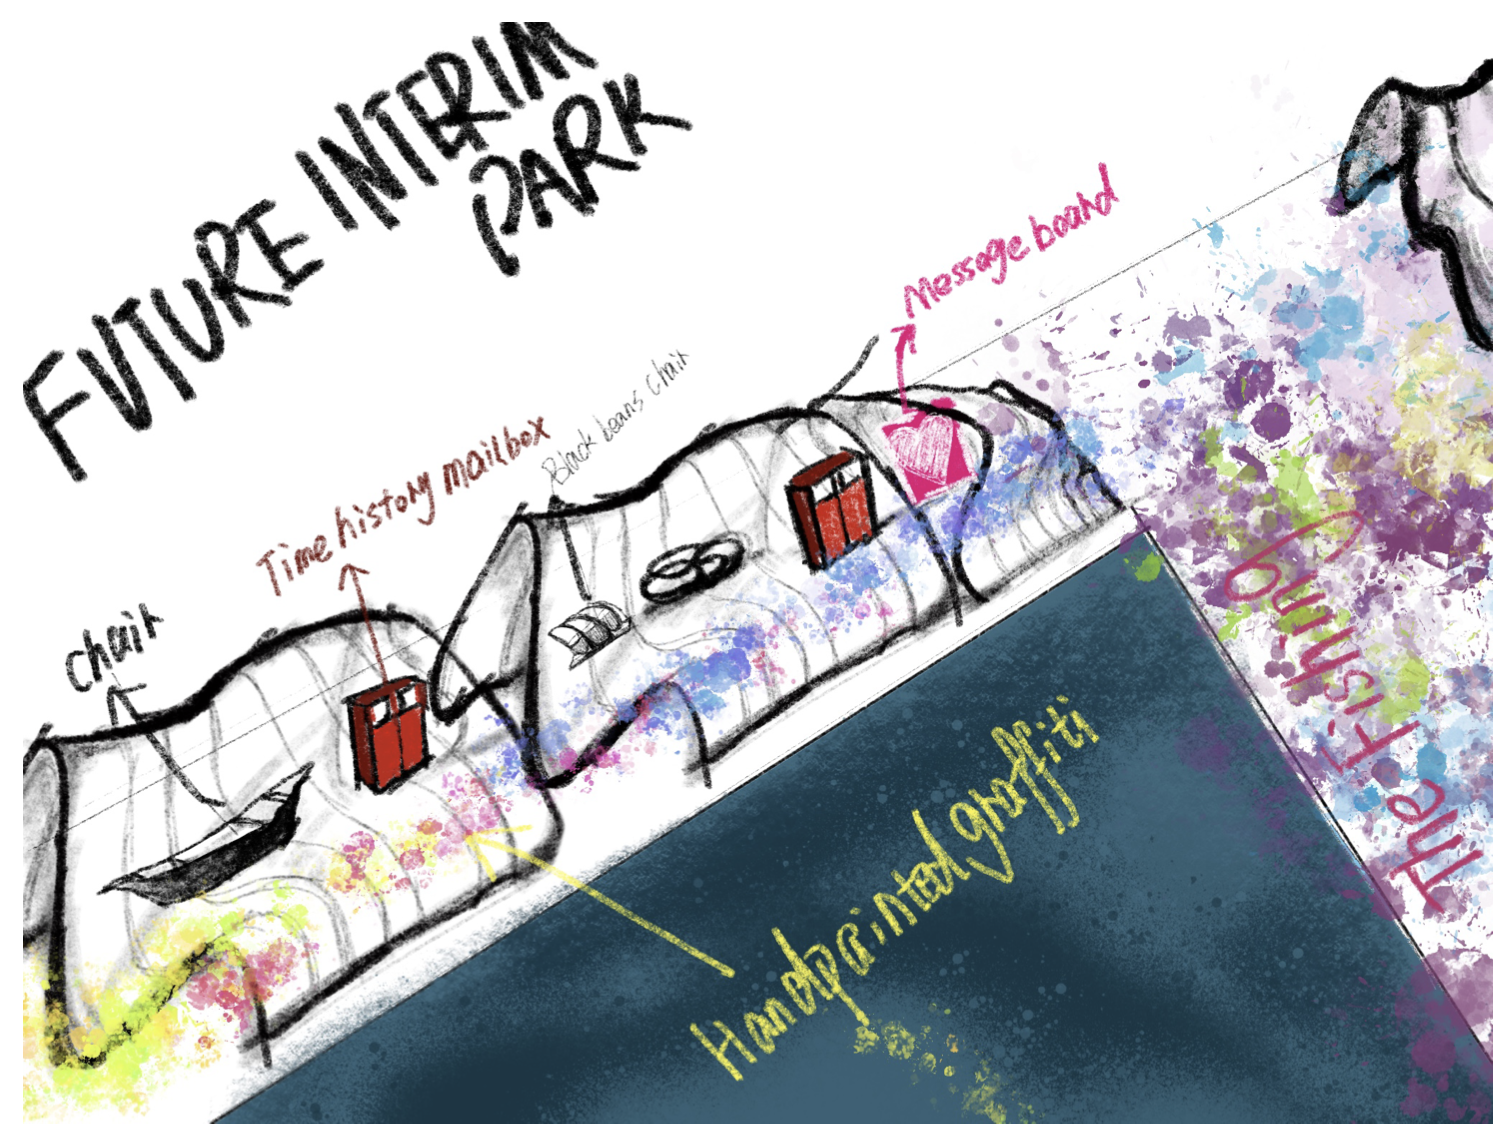 FUTURE INTERIM
PARK
Message board
Black beans chair
Time history mailbox
chair
Handpainted graffiti
The Fishing